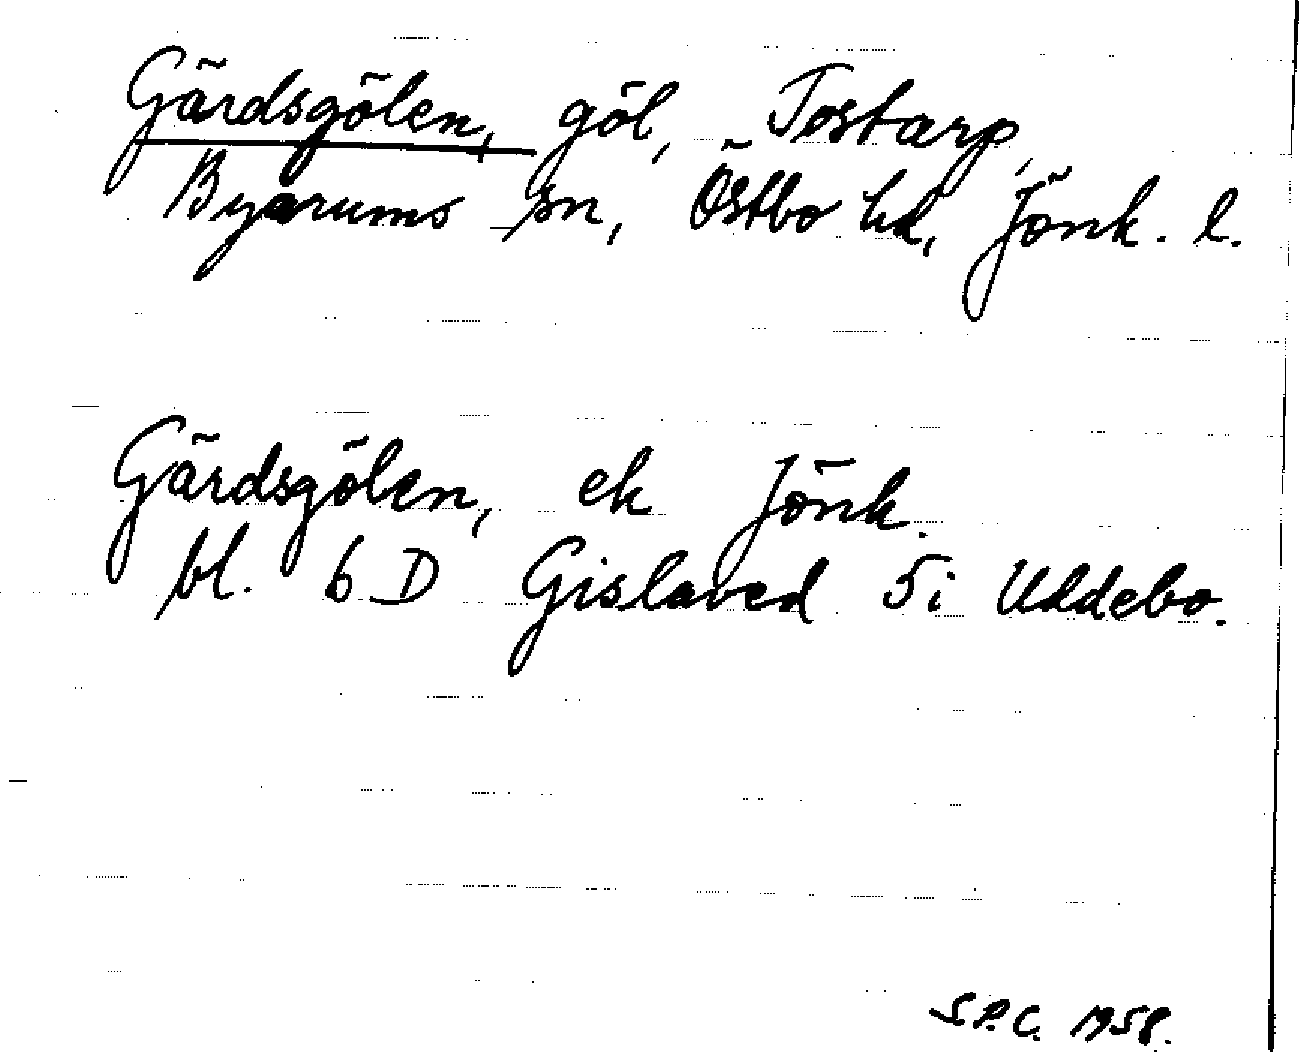 Gärdsgölen, göl, Tostarp,
Byarums sn, Östbo hd, Jönk. l.
Gärdsgölen, ek Jönk.
bl. 6 D Gislaved 5i Uddebo.
S.P.C. 1958.